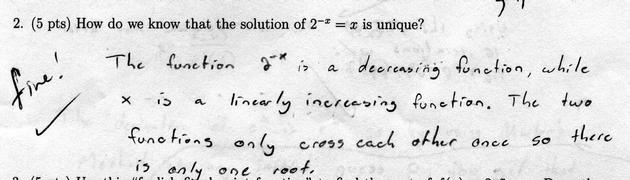 2. (5 pts) How do we know that the solution of 2⁻ˣ = x is unique?
fine!
The function 2⁻ˣ is a decreasing function, while
x is a linearly increasing function. The two
functions only cross each other once so there
is only one root.